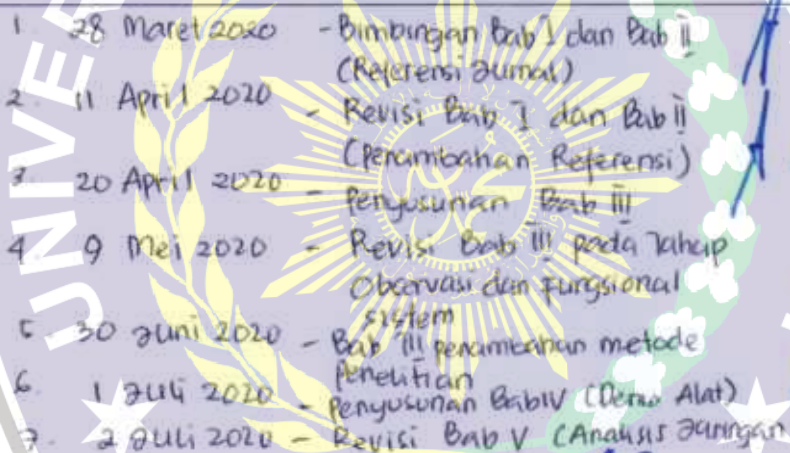 1 28 Maret 2020 - Bimbingan Bab I dan Bab II
(Referensi Jurnal)
2. 11 April 2020 - Revisi Bab I dan Bab II
(Penambahan Referensi)
3. 20 April 2020 - Penyusunan Bab III
4. 9 Mei 2020 - Revisi Bab III pada Tahap
Observasi dan Fungsional
sistem
5. 30 Juni 2020 - Bab III penambahan metode
Penelitian
6. 1 Juli 2020 - Penyusunan Bab IV (Demo Alat)
7. 2 Juli 2020 - Revisi Bab V (Analisis Jaringan
UNIVER